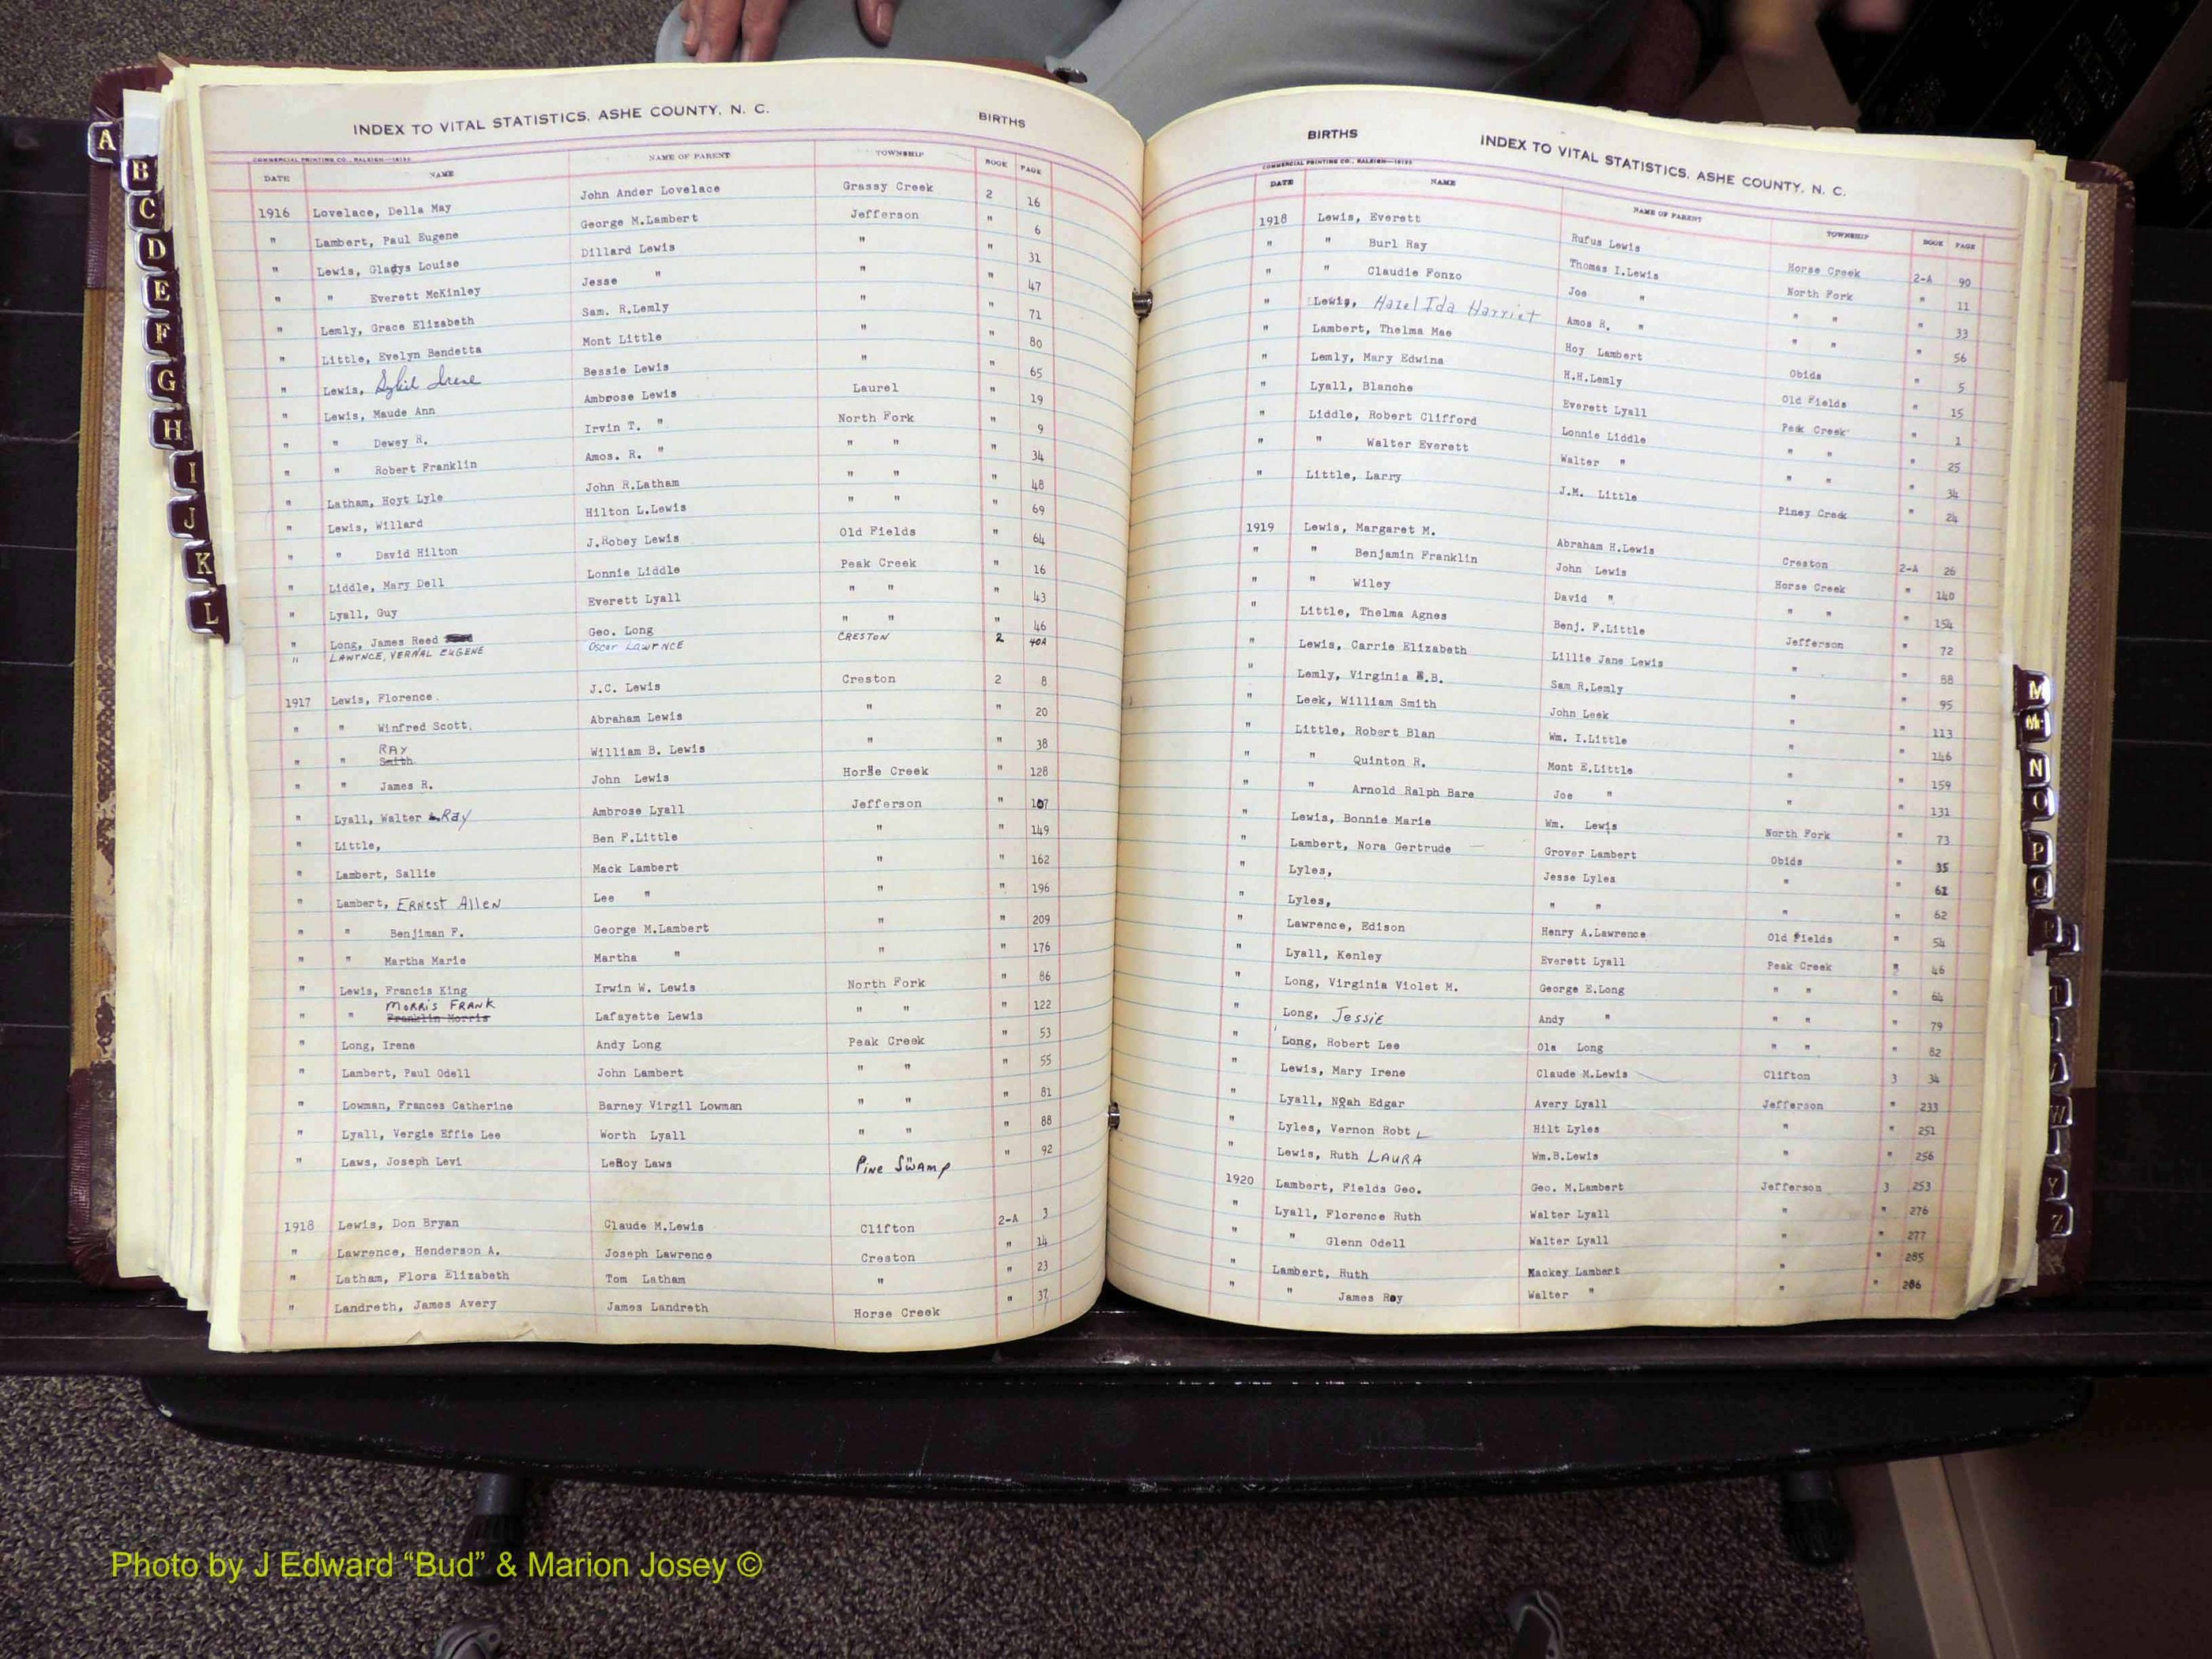 INDEX TO VITAL STATISTICS, ASHE COUNTY, N. C. BIRTHS
COMMERCIAL PRINTING CO., RALEIGH—
DATE NAME NAME OF PARENT TOWNSHIP BOOK PAGE
1916 Lovelace, Della May John Ander Lovelace Grassy Creek 2 16
" Lambert, Paul Eugene George M.Lambert Jefferson " 6
" Lewis, Gladys Louise Dillard Lewis " " 31
" " Everett McKinley Jesse " " " 47
" Lemly, Grace Elizabeth Sam. R.Lemly " " 71
" Little, Evelyn Bendetta Mont Little " " 80
" Lewis, Sybil Irene Bessie Lewis " " 65
" Lewis, Maude Ann Ambrose Lewis Laurel " 19
" " Dewey R. Irvin T. " North Fork " 9
" " Robert Franklin Amos. R. " " " " 34
" Latham, Hoyt Lyle John R.Latham " " " 48
" Lewis, Willard Hilton L.Lewis " " " 69
" " David Hilton J.Robey Lewis Old Fields " 64
" Liddle, Mary Dell Lonnie Liddle Peak Creek " 16
" Lyall, Guy Everett Lyall " " " 43
" Long, James Reed Geo. Long " " " 46
" LAWRNCE, VERNAL EUGENE Oscar LAWRNCE CRESTON 2 40A
1917 Lewis, Florence. J.C. Lewis Creston 2 8
" " Winfred Scott, Abraham Lewis " " 20
RAY
" " Smith William B. Lewis " " 38
" " James R. John Lewis Horse Creek " 128
" Lyall, Walter Ray Ambrose Lyall Jefferson " 107
" Little, Ben F.Little " " 149
" Lambert, Sallie Mack Lambert " " 162
" Lambert, ERNEST AllEN Lee " " " 196
" " Benjiman F. George M.Lambert " " 209
" " Martha Marie Martha " " " 176
" Lewis, Francis King Irwin W. Lewis North Fork " 86
MORRIS FRANK
" " Franklin Morris Lafayette Lewis " " " 122
" Long, Irene Andy Long Peak Creek " 53
" Lambert, Paul Odell John Lambert " " " 55
" Lowman, Frances Catherine Barney Virgil Lowman " " " 81
" Lyall, Vergie Effie Lee Worth Lyall " " " 88
" Laws, Joseph Levi LeRoy Laws PINE SWAMP " 92
1918 Lewis, Don Bryan Claude M.Lewis Clifton 2-A 3
" Lawrence, Henderson A. Joseph Lawrence Creston " 14
" Latham, Flora Elizabeth Tom Latham " " 23
" Landreth, James Avery James Landreth Horse Creek " 37
BIRTHS INDEX TO VITAL STATISTICS, ASHE COUNTY, N. C.
COMMERCIAL PRINTING CO., RALEIGH—
DATE NAME NAME OF PARENT TOWNSHIP BOOK PAGE
1918 Lewis, Everett Rufus Lewis Horse Creek 2-A 90
" " Burl Ray Thomas I.Lewis North Fork " 11
" " Claudie Fonzo Joe " " " " 33
" Lewis, Hazel Ida Harriet Amos R. " " " " 56
" Lambert, Thelma Mae Hoy Lambert Obids " 5
" Lemly, Mary Edwina H.H.Lemly Old Fields " 15
" Lyall, Blanche Everett Lyall Peak Creek " 1
" Liddle, Robert Clifford Lonnie Liddle " " " 25
" " Walter Everett Walter " " " " 34
" Little, Larry J.M. Little Piney Creek " 24
1919 Lewis, Margaret M. Abraham H.Lewis Creston 2-A 26
" " Benjamin Franklin John Lewis Horse Creek " 140
" " Wiley David " " " " 154
" Little, Thelma Agnes Benj. F.Little Jefferson " 72
" Lewis, Carrie Elizabeth Lillie Jane Lewis " " 88
" Lemly, Virginia B. Sam R.Lemly " " 95
" Leek, William Smith John Leek " " 113
" Little, Robert Blan Wm. I.Little " " 146
" " Quinton R. Mont E.Little " " 159
" " Arnold Ralph Bare Joe " " " 131
" Lewis, Bonnie Marie Wm. Lewis North Fork " 73
" Lambert, Nora Gertrude Grover Lambert Obids " 35
" Lyles, Jesse Lyles " " 61
" Lyles, " " " " 62
" Lawrence, Edison Henry A.Lawrence Old Fields " 54
" Lyall, Kenley Everett Lyall Peak Creek " 46
" Long, Virginia Violet M. George E.Long " " " 64
" Long, JESSIE Andy " " " " 79
" Long, Robert Lee Ola Long " " " 82
" Lewis, Mary Irene Claude M.Lewis Clifton 3 34
" Lyall, Noah Edgar Avery Lyall Jefferson " 233
" Lyles, Vernon Robt L Hilt Lyles " " 251
" Lewis, Ruth LAURA Wm.B.Lewis " " 256
1920 Lambert, Fields Geo. Geo. M.Lambert Jefferson 3 253
" Lyall, Florence Ruth Walter Lyall " " 276
" " Glenn Odell Walter Lyall " " 277
" Lambert, Ruth Mackey Lambert " " 285
" " James Roy Walter " " " 286
A
B
C
D
E
F
G
H
I
J
K
L
M
Mc
N
O
P
Q
R
T
W
Y
Z
Photo by J Edward “Bud” & Marion Josey ©